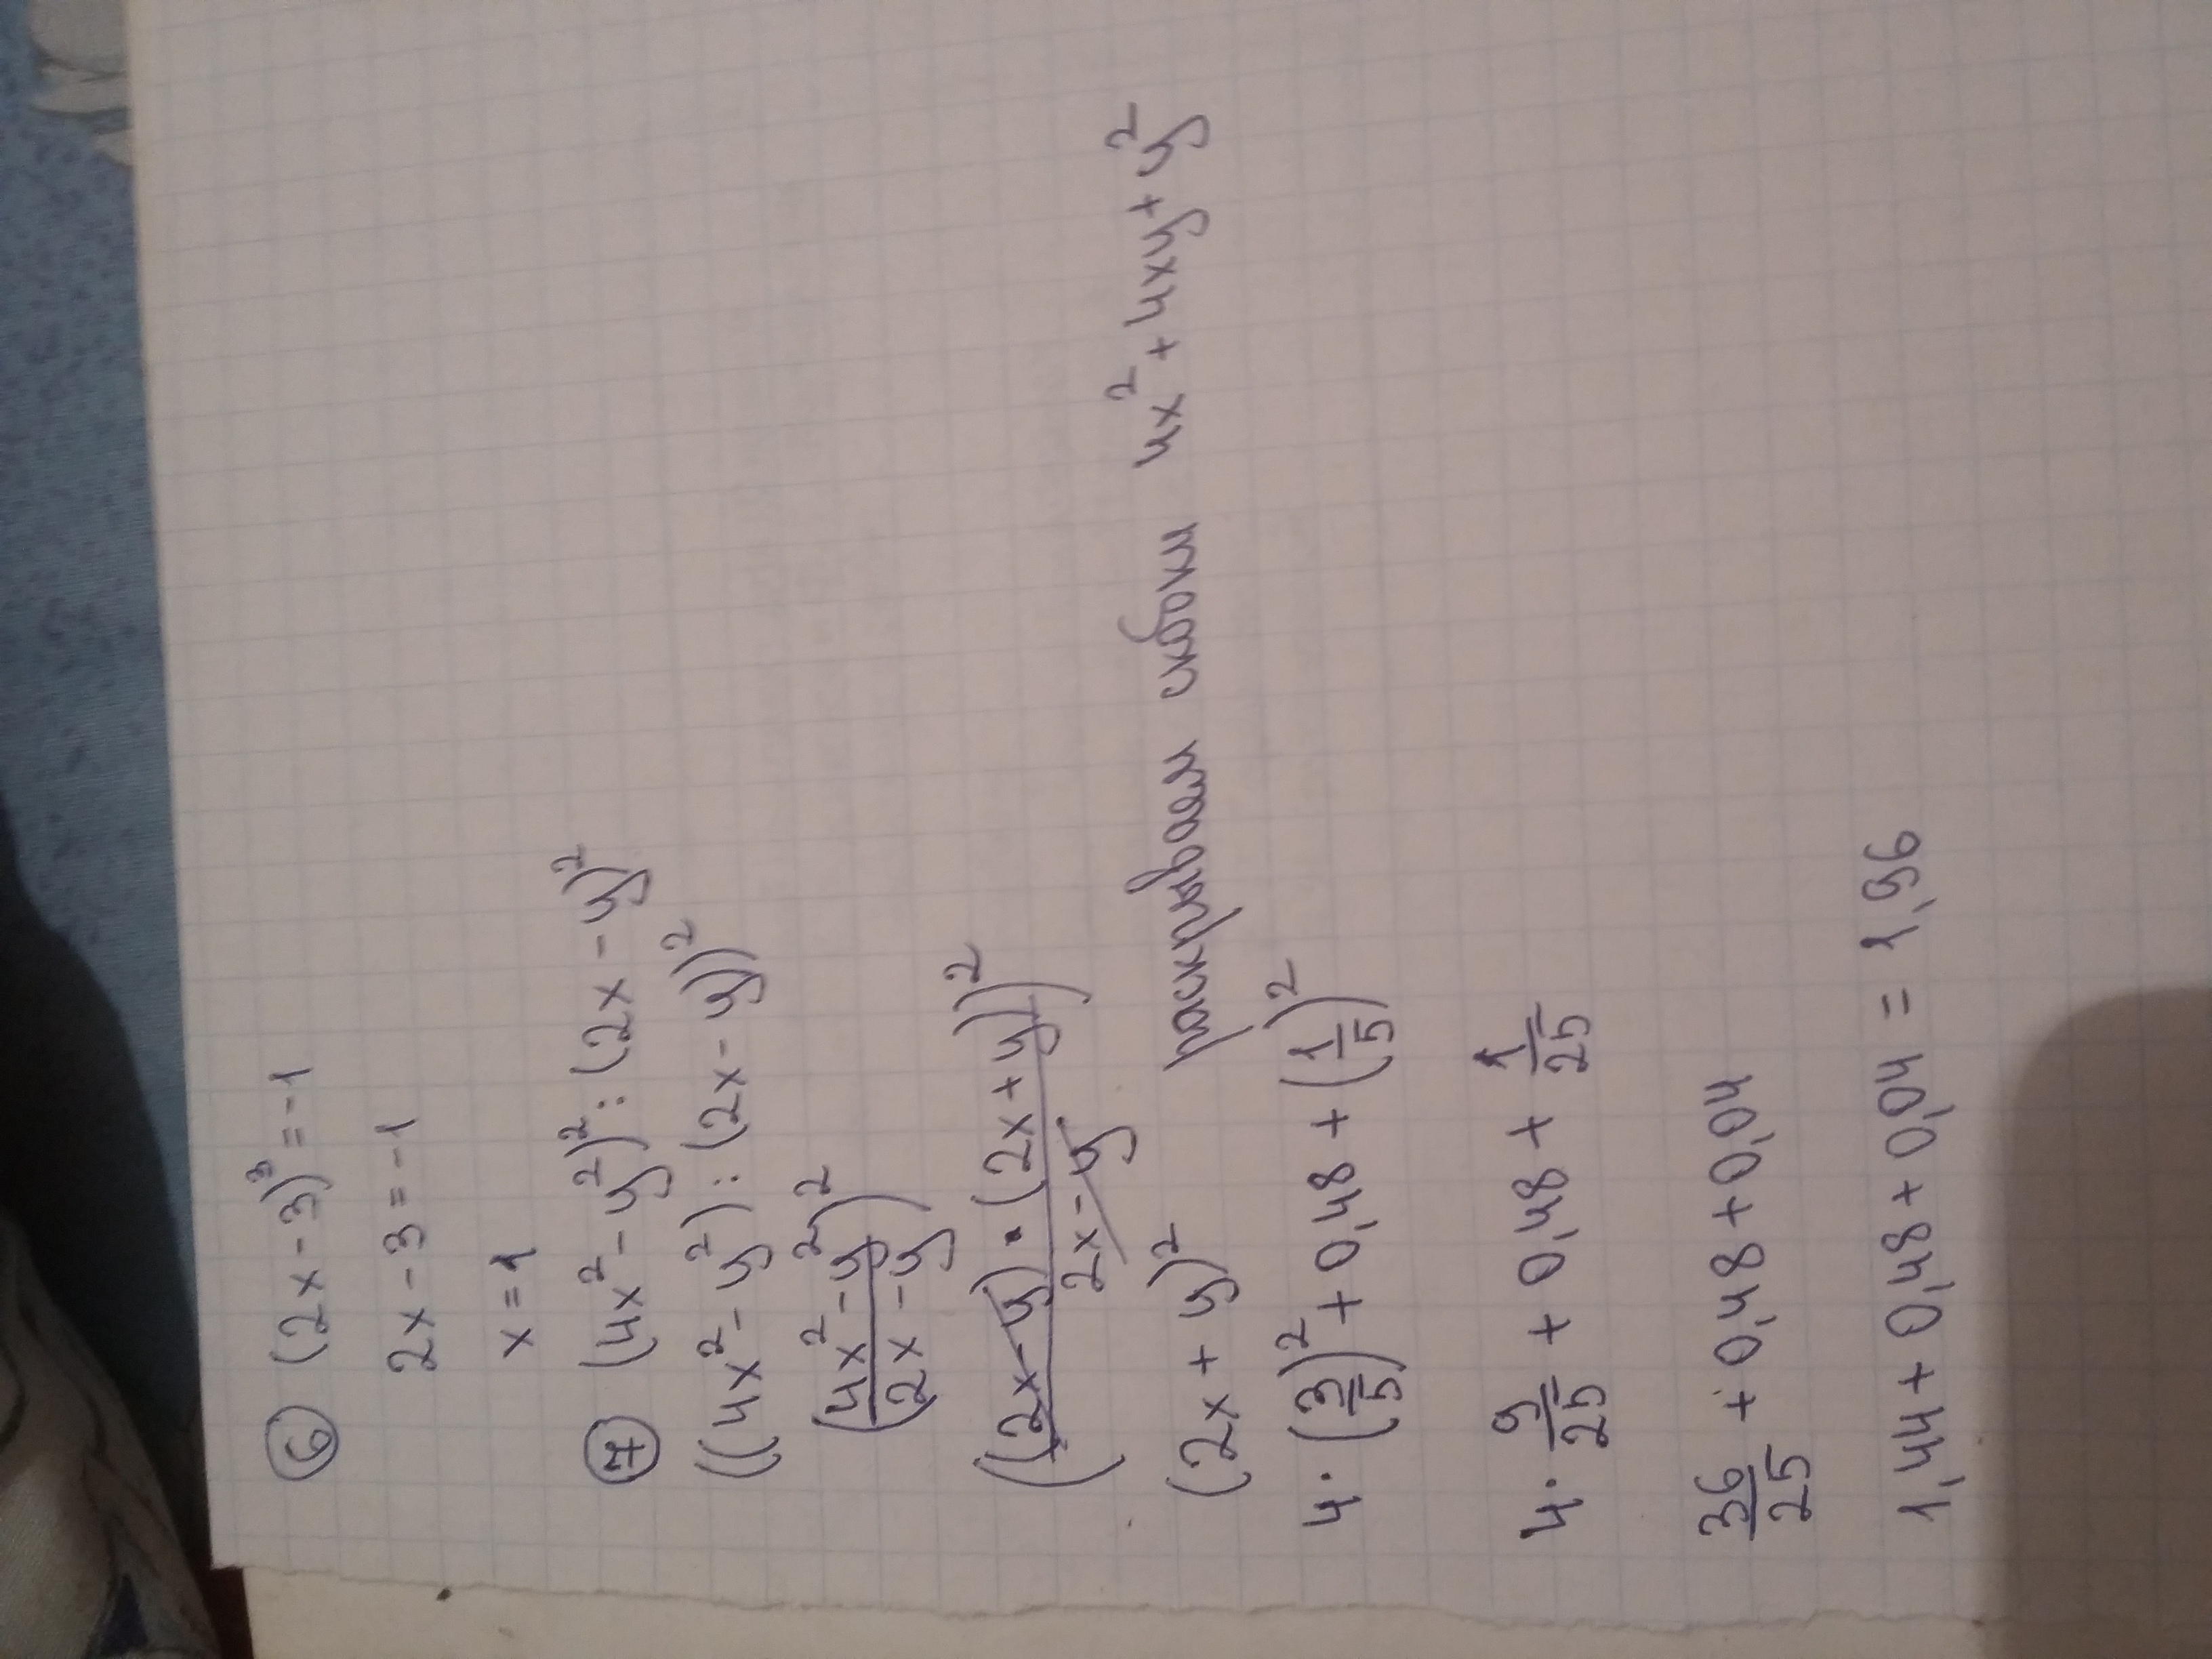 6 (2x - 3)³ = -1
2x - 3 = -1
x = 1
7 (4x² - y²)² : (2x - y)²
((4x² - y²) : (2x - y))²
((4x² - y²)/(2x - y))²
((2x - y) · (2x + y)/(2x - y))²
(2x + y)² раскрываем скобки 4x² + 4xy + y²
4 · (3/5)² + 0,48 + (1/5)²
4 · 9/25 + 0,48 + 1/25
36/25 + 0,48 + 0,04
1,44 + 0,48 + 0,04 = 1,96